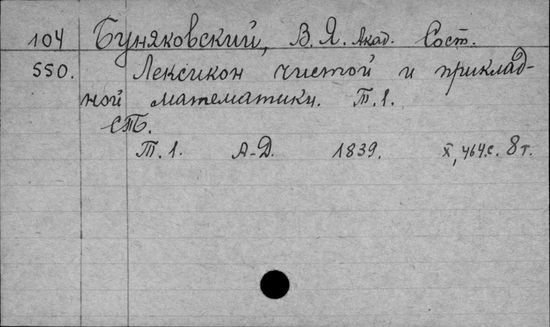 104 Буняковский, В. Я. Акад. Сост.
550. Лексикон чистой и приклад-
ной математики. Т. 1.
СПБ.
Т. 1. А-Д. 1839. X, 464 с. 8 т.